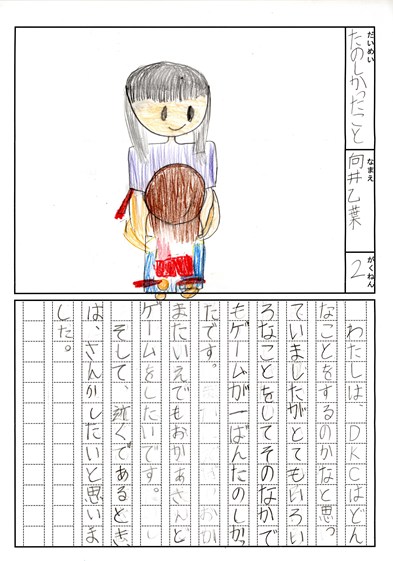 だいめい
たのしかったこと
なまえ
向井乙葉
がくねん
2
わたしは、DKCはどん
なことをするのかなと思っ
ていましたがとてもいろい
ろなことをしてそのなかで
もゲームが一ばんたのしかっ
たです。
またいえでもおかあさんと
ゲームをしたいです。
そして、近くであるとき
は、さんかしたいと思いま
した。